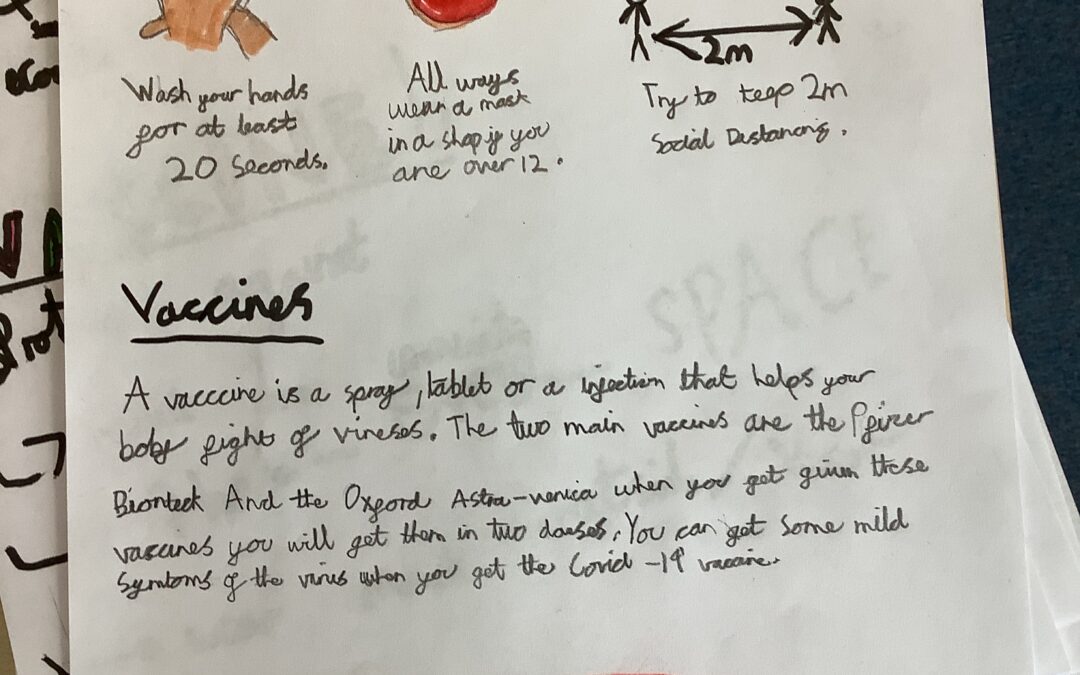 2m
Wash your hands
for at least
20 seconds.
All ways
wear a mask
in a shop if you
are over 12.
Try to keep 2m
Social Distancing.
Vaccines
A vacccine is a spray, tablet or a injection that helps your
boby fight of viruses. The two main vaccines are the Pfizer
Bionteck And the Oxford Astra-venica when you get given these
vaccines you will get them in two doeses. You can get some mild
Symtoms of the virus when you get the Covid -19 vaccine.